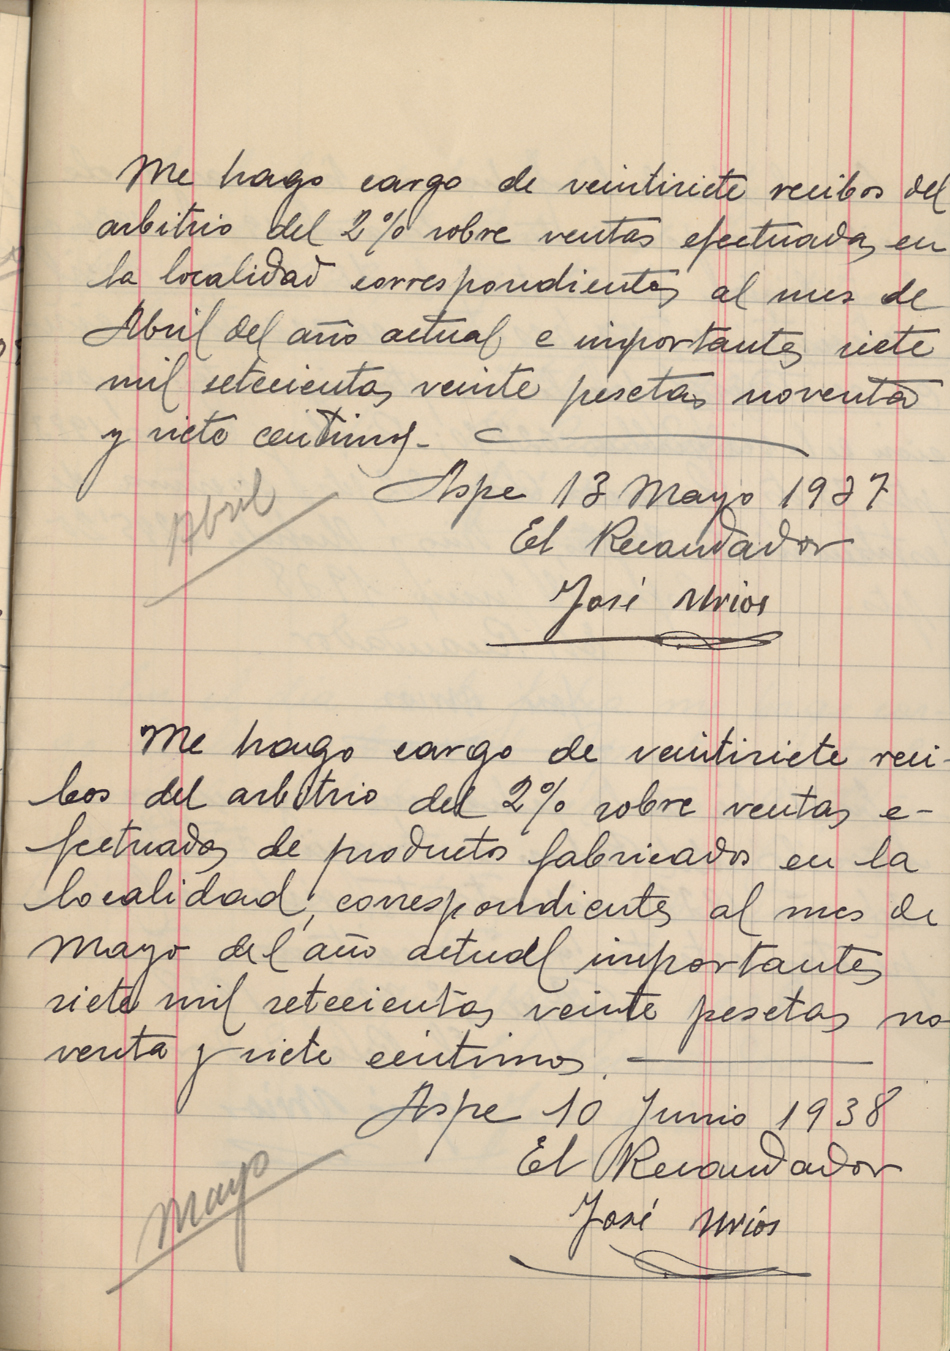 Me hago cargo de veintisiete recibos del
arbitrio del 2% sobre ventas efectuadas en
la localidad correspondientes al mes de
Abril del año actual e importantes siete
mil setecientas veinte pesetas noventa
y siete centimos.
Abril
Aspe 13 Mayo 1937
El Recaudador
José Urios
Me hago cargo de veintisiete reci-
bos del arbitrio del 2% sobre ventas e-
fectuadas de productos fabricados en la
localidad, correspondientes al mes de
Mayo del año actual importantes
siete mil setecientas veinte pesetas no
venta y siete centimos.
Aspe 10 Junio 1938
El Recaudador
Mayo
José Urios